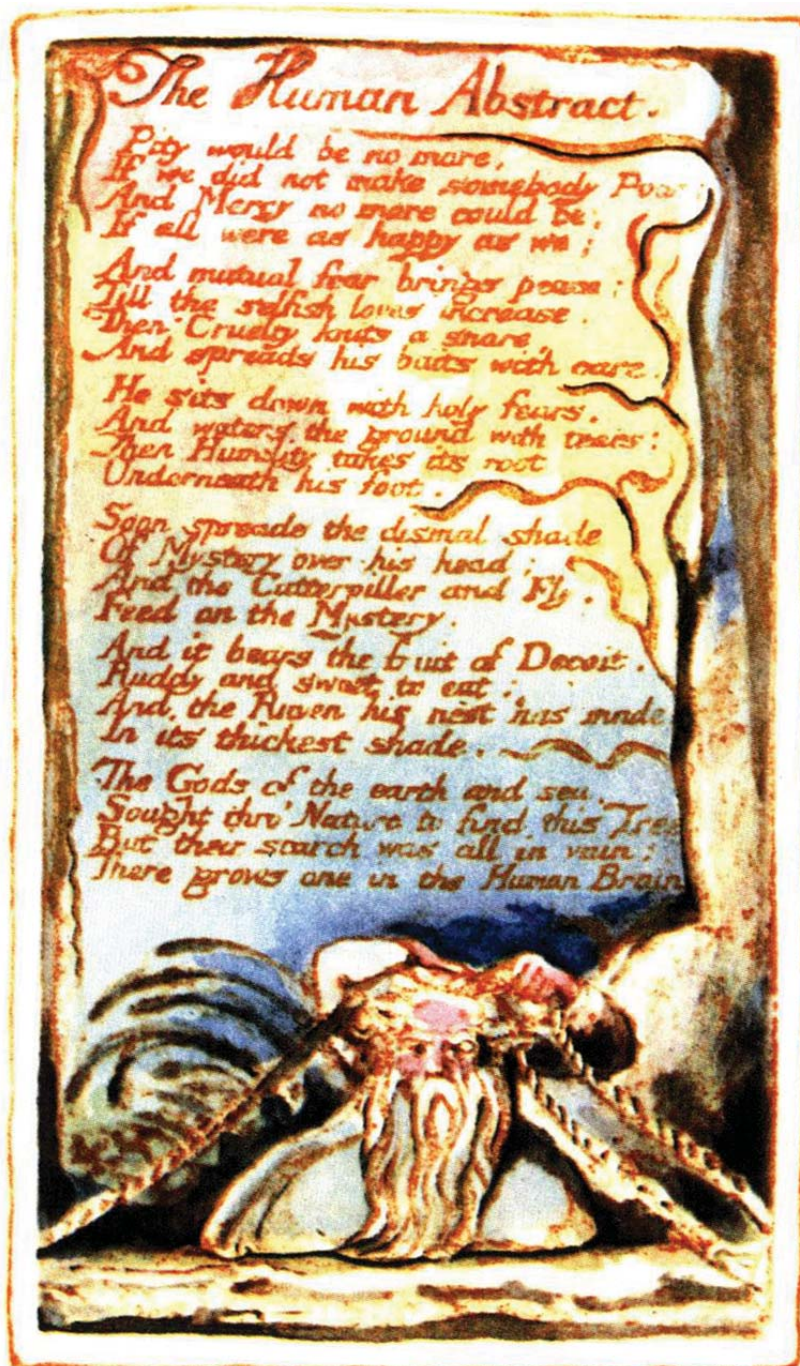 The Human Abstract.
Pity would be no more,
If we did not make somebody Poor:
And Mercy no more could be,
If all were as happy as we;
And mutual fear brings peace:
Till the selfish loves increase.
Then Cruelty knits a snare,
And spreads his baits with care.
He sits down with holy fears,
And waters the ground with tears:
Then Humility takes its root
Underneath his foot.
Soon spreads the dismal shade
Of Mystery over his head;
And the Catterpiller and Fly,
Feed on the Mystery.
And it bears the fruit of Deceit.
Ruddy and sweet to eat;
And the Raven his nest has made
In its thickest shade.
The Gods of the earth and sea,
Sought thro' Nature to find this Tree
But their search was all in vain:
There grows one in the Human Brain